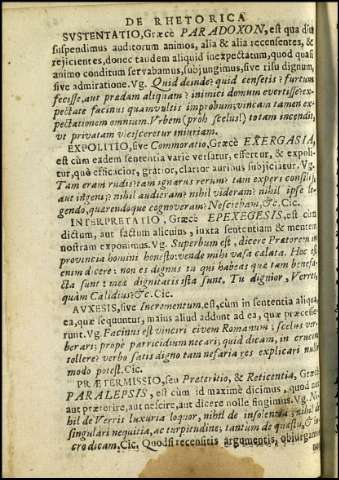 DE RHETORICA
SVSTENTATIO, Græcè PARADOXON, est qua diu
suspendimus auditorum animos, alia & alia recensentes, &
rejicientes, donec tandem aliquid inexpectatum, quod quasi
animo conditum servabamus, subjungimus, sive risu dignum,
sive admiratione. Vg. Quid deinde? quid censetis? furtum
fecisse, aut prædam aliquam? animis domum evertisse? ex-
pectate facinus quamvultis improbum; vincam tamen ex-
pectationem omnium. Vrbem (proh scelus!) totam incendit,
vt privatam vlcisceretur iniuriam.
EXPOLITIO, sive Commoratio, Græcè EXERGASIA,
est cùm eadem sententia variè versatur, effertur, & expoli-
tur, quò efficacior, gratior, clarior auribus subjiciatur. Vg.
Tam eram rudis? tam ignarus rerum? tam expers consilij,
aut ingenij? nihil audieram? nihil videram? nihil ipse le-
gendo, quærendoque cognoveram? Nesciebam, &c. Cic.
INTERPRETATIO, Græcè EPEXEGESIS, est cùm
dictum, aut factum alicuius, iuxta sententiam & mentem
nostram exponimus. Vg. Superbum est, dicere Prætorem in
provincia homini honesto: vende mihi vasa cælata. Hoc est
enim dicere: non es dignus tu qui habeas quæ tam benefa-
cta sunt: meæ dignitatis ista sunt. Tu dignior, Verres,
quàm Calidius? &c. Cic.
AVXESIS, sive Incrementum, est, cùm in sententia aliqua,
ea, quæ sequuntur, maius aliud addunt ad ea, quæ præcesse-
runt. Vg. Facinus est vinciri civem Romanum; scelus ver-
berari; propè parricidium necari; quid dicam, in crucem
tollere? verbo satis digno tam nefaria res explicari nullo
modo potest. Cic.
PRÆTERMISSIO, seu Præteritio, & Reticentia, Græcè
PARALEPSIS, est cùm id maximè dicimus, quod nos
aut præterire, aut nescire, aut dicere nolle fingimus. Vg. Ni-
hil de Verris luxuria loquor, nihil de insolentia, nihil de
singulari nequitia, ac turpitudine; tantum de quæstu, &
lucro dicam. Cic. Quod si recensitis argumentis, obiurgam